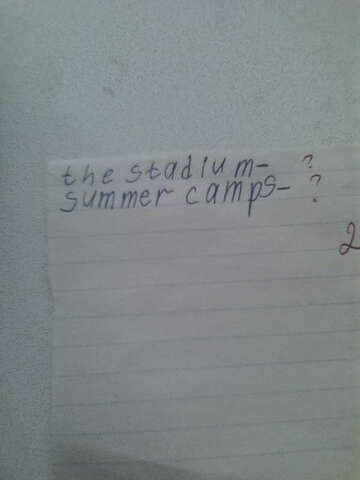 the stadium- ?
summer camps- ?
2